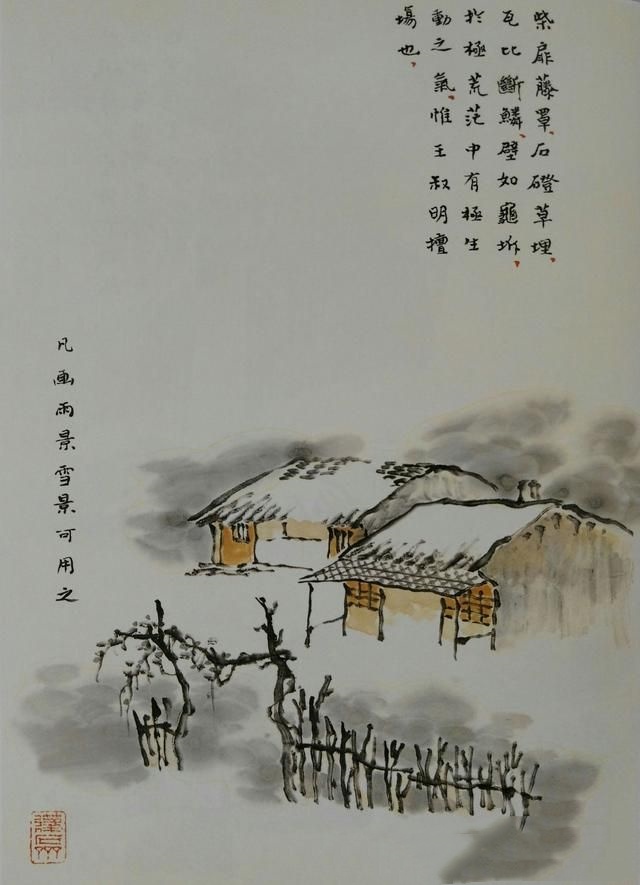 柴扉藤罩、石磴草埋、
瓦比斷鱗、壁如龜坼、
扵極荒茫中有極生
動之氣、惟王叔明擅
塲也、
凡画雨景雪景可用之